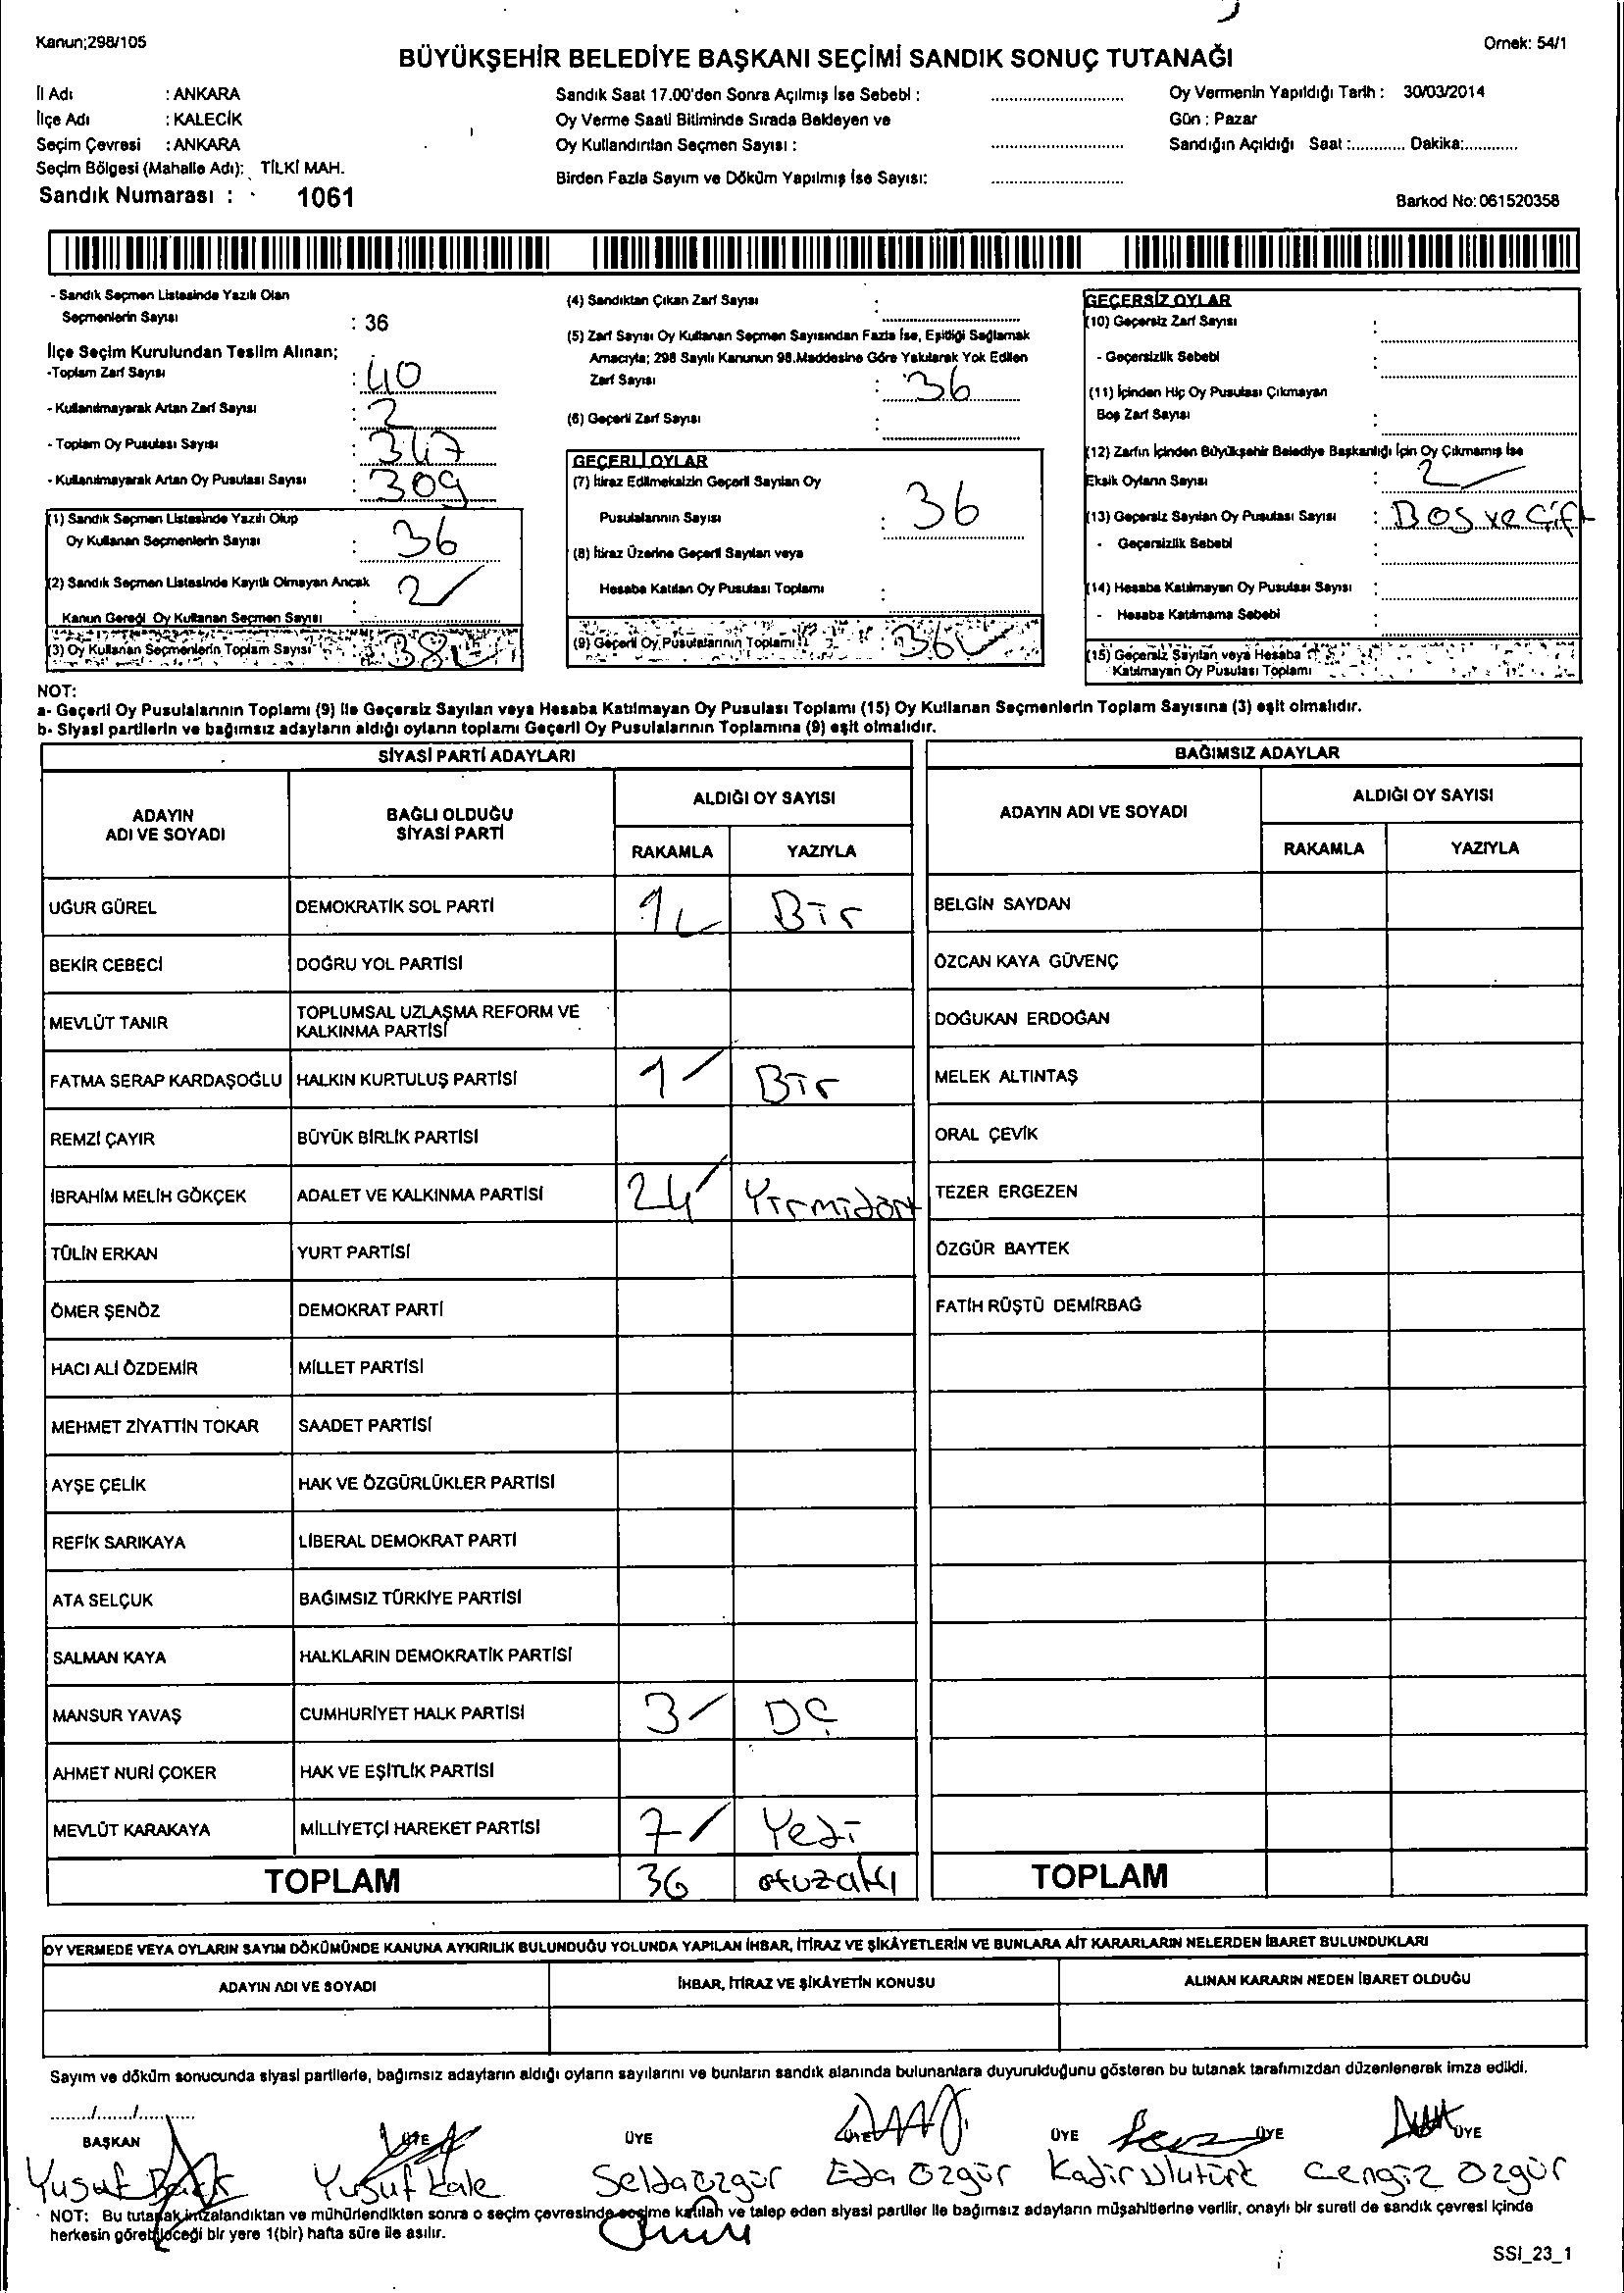 Kanun;298/105
Örnek: 54/1
BÜYÜKŞEHİR BELEDİYE BAŞKANI SEÇİMİ SANDIK SONUÇ TUTANAĞI
İl Adı : ANKARA
İlçe Adı : KALECİK
Seçim Çevresi : ANKARA
Seçim Bölgesi (Mahalle Adı): TİLKİ MAH.
Sandık Numarası : 1061
Sandık Saat 17.00'den Sonra Açılmış İse Sebebi :
Oy Verme Saati Bitiminde Sırada Bekleyen ve
Oy Kullandırılan Seçmen Sayısı :
Birden Fazla Sayım ve Döküm Yapılmış İse Sayısı:
Oy Vermenin Yapıldığı Tarih : 30/03/2014
Gün : Pazar
Sandığın Açıldığı Saat :............ Dakika:............
Barkod No: 061520358
- Sandık Seçmen Listesinde Yazılı Olan
Seçmenlerin Sayısı : 36
İlçe Seçim Kurulundan Teslim Alınan;
-Toplam Zarf Sayısı : 40
- Kullanılmayarak Artan Zarf Sayısı : 2
- Toplam Oy Pusulası Sayısı : 347
- Kullanılmayarak Artan Oy Pusulası Sayısı : 309
(1) Sandık Seçmen Listesinde Yazılı Olup
Oy Kullanan Seçmenlerin Sayısı : 36
(2) Sandık Seçmen Listesinde Kayıtlı Olmayan Ancak
Kanun Gereği Oy Kullanan Seçmen Sayısı : 2
(3) Oy Kullanan Seçmenlerin Toplam Sayısı 38
(4) Sandıktan Çıkan Zarf Sayısı :
(5) Zarf Sayısı Oy Kullanan Seçmen Sayısından Fazla İse, Eşitliği Sağlamak
Amacıyla; 298 Sayılı Kanunun 98.Maddesine Göre Yakılarak Yok Edilen
Zarf Sayısı : 36
(6) Geçerli Zarf Sayısı :
GEÇERLİ OYLAR
(7) İtiraz Edilmeksizin Geçerli Sayılan Oy
Pusulalarının Sayısı : 36
(8) İtiraz Üzerine Geçerli Sayılan veya
Hesaba Katılan Oy Pusulası Toplamı :
(9) Geçerli Oy Pusulalarının Toplamı 36
GEÇERSİZ OYLAR
(10) Geçersiz Zarf Sayısı :
- Geçersizlik Sebebi :
(11) İçinden Hiç Oy Pusulası Çıkmayan
Boş Zarf Sayısı :
(12) Zarfın İçinden Büyükşehir Belediye Başkanlığı İçin Oy Çıkmamış İse
Eksik Oyların Sayısı : 2
(13) Geçersiz Sayılan Oy Pusulası Sayısı : Bos ve Çift
- Geçersizlik Sebebi :
(14) Hesaba Katılmayan Oy Pusulası Sayısı :
- Hesaba Katılmama Sebebi :
(15) Geçersiz Sayılan veya Hesaba
Katılmayan Oy Pusulası Toplamı
NOT:
a- Geçerli Oy Pusulalarının Toplamı (9) ile Geçersiz Sayılan veya Hesaba Katılmayan Oy Pusulası Toplamı (15) Oy Kullanan Seçmenlerin Toplam Sayısına (3) eşit olmalıdır.
b- Siyasi partilerin ve bağımsız adayların aldığı oyların toplamı Geçerli Oy Pusulalarının Toplamına (9) eşit olmalıdır.
SİYASİ PARTİ ADAYLARI
ADAYIN ADI VE SOYADI BAĞLI OLDUĞU SİYASİ PARTİ ALDIĞI OY SAYISI
RAKAMLA YAZIYLA
UĞUR GÜREL DEMOKRATİK SOL PARTİ 1 Bir
BEKİR CEBECİ DOĞRU YOL PARTİSİ
MEVLÜT TANIR TOPLUMSAL UZLAŞMA REFORM VE KALKINMA PARTİSİ
FATMA SERAP KARDAŞOĞLU HALKIN KURTULUŞ PARTİSİ 1 Bir
REMZİ ÇAYIR BÜYÜK BİRLİK PARTİSİ
İBRAHİM MELİH GÖKÇEK ADALET VE KALKINMA PARTİSİ 24 Yirmidört
TÜLİN ERKAN YURT PARTİSİ
ÖMER ŞENÖZ DEMOKRAT PARTİ
HACI ALİ ÖZDEMİR MİLLET PARTİSİ
MEHMET ZİYATTİN TOKAR SAADET PARTİSİ
AYŞE ÇELİK HAK VE ÖZGÜRLÜKLER PARTİSİ
REFİK SARIKAYA LİBERAL DEMOKRAT PARTİ
ATA SELÇUK BAĞIMSIZ TÜRKİYE PARTİSİ
SALMAN KAYA HALKLARIN DEMOKRATİK PARTİSİ
MANSUR YAVAŞ CUMHURİYET HALK PARTİSİ 3 ÜÇ
AHMET NURİ ÇOKER HAK VE EŞİTLİK PARTİSİ
MEVLÜT KARAKAYA MİLLİYETÇİ HAREKET PARTİSİ 7 Yedi
TOPLAM 36 otuzaltı
BAĞIMSIZ ADAYLAR
ADAYIN ADI VE SOYADI ALDIĞI OY SAYISI
RAKAMLA YAZIYLA
BELGİN SAYDAN
ÖZCAN KAYA GÜVENÇ
DOĞUKAN ERDOĞAN
MELEK ALTINTAŞ
ORAL ÇEVİK
TEZER ERGEZEN
ÖZGÜR BAYTEK
FATİH RÜŞTÜ DEMİRBAĞ
TOPLAM
OY VERMEDE VEYA OYLARIN SAYIM DÖKÜMÜNDE KANUNA AYKIRILIK BULUNDUĞU YOLUNDA YAPILAN İHBAR, İTİRAZ VE ŞİKÂYETLERİN VE BUNLARA AİT KARARLARIN NELERDEN İBARET BULUNDUKLARI
ADAYIN ADI VE SOYADI İHBAR, İTİRAZ VE ŞİKÂYETİN KONUSU ALINAN KARARIN NEDEN İBARET OLDUĞU
Sayım ve döküm sonucunda siyasi partilerle, bağımsız adayların aldığı oyların sayılarını ve bunların sandık alanında bulunanlara duyurulduğunu gösteren bu tutanak tarafımızdan düzenlenerek imza edildi.
......../......../............
BAŞKAN ÜYE ÜYE ÜYE ÜYE ÜYE ÜYE
Yusuf Yusuf Kale Selda özgür Eda Özgür Kadir Ulutürk Cengiz Özgür
NOT: Bu tutanak imzalandıktan ve mühürlendikten sonra o seçim çevresinde seçime katılan ve talep eden siyasi partiler ile bağımsız adayların müşahitlerine verilir, onaylı bir sureti de sandık çevresi içinde
herkesin görebileceği bir yere 1(bir) hafta süre ile asılır.
SSI_23_1